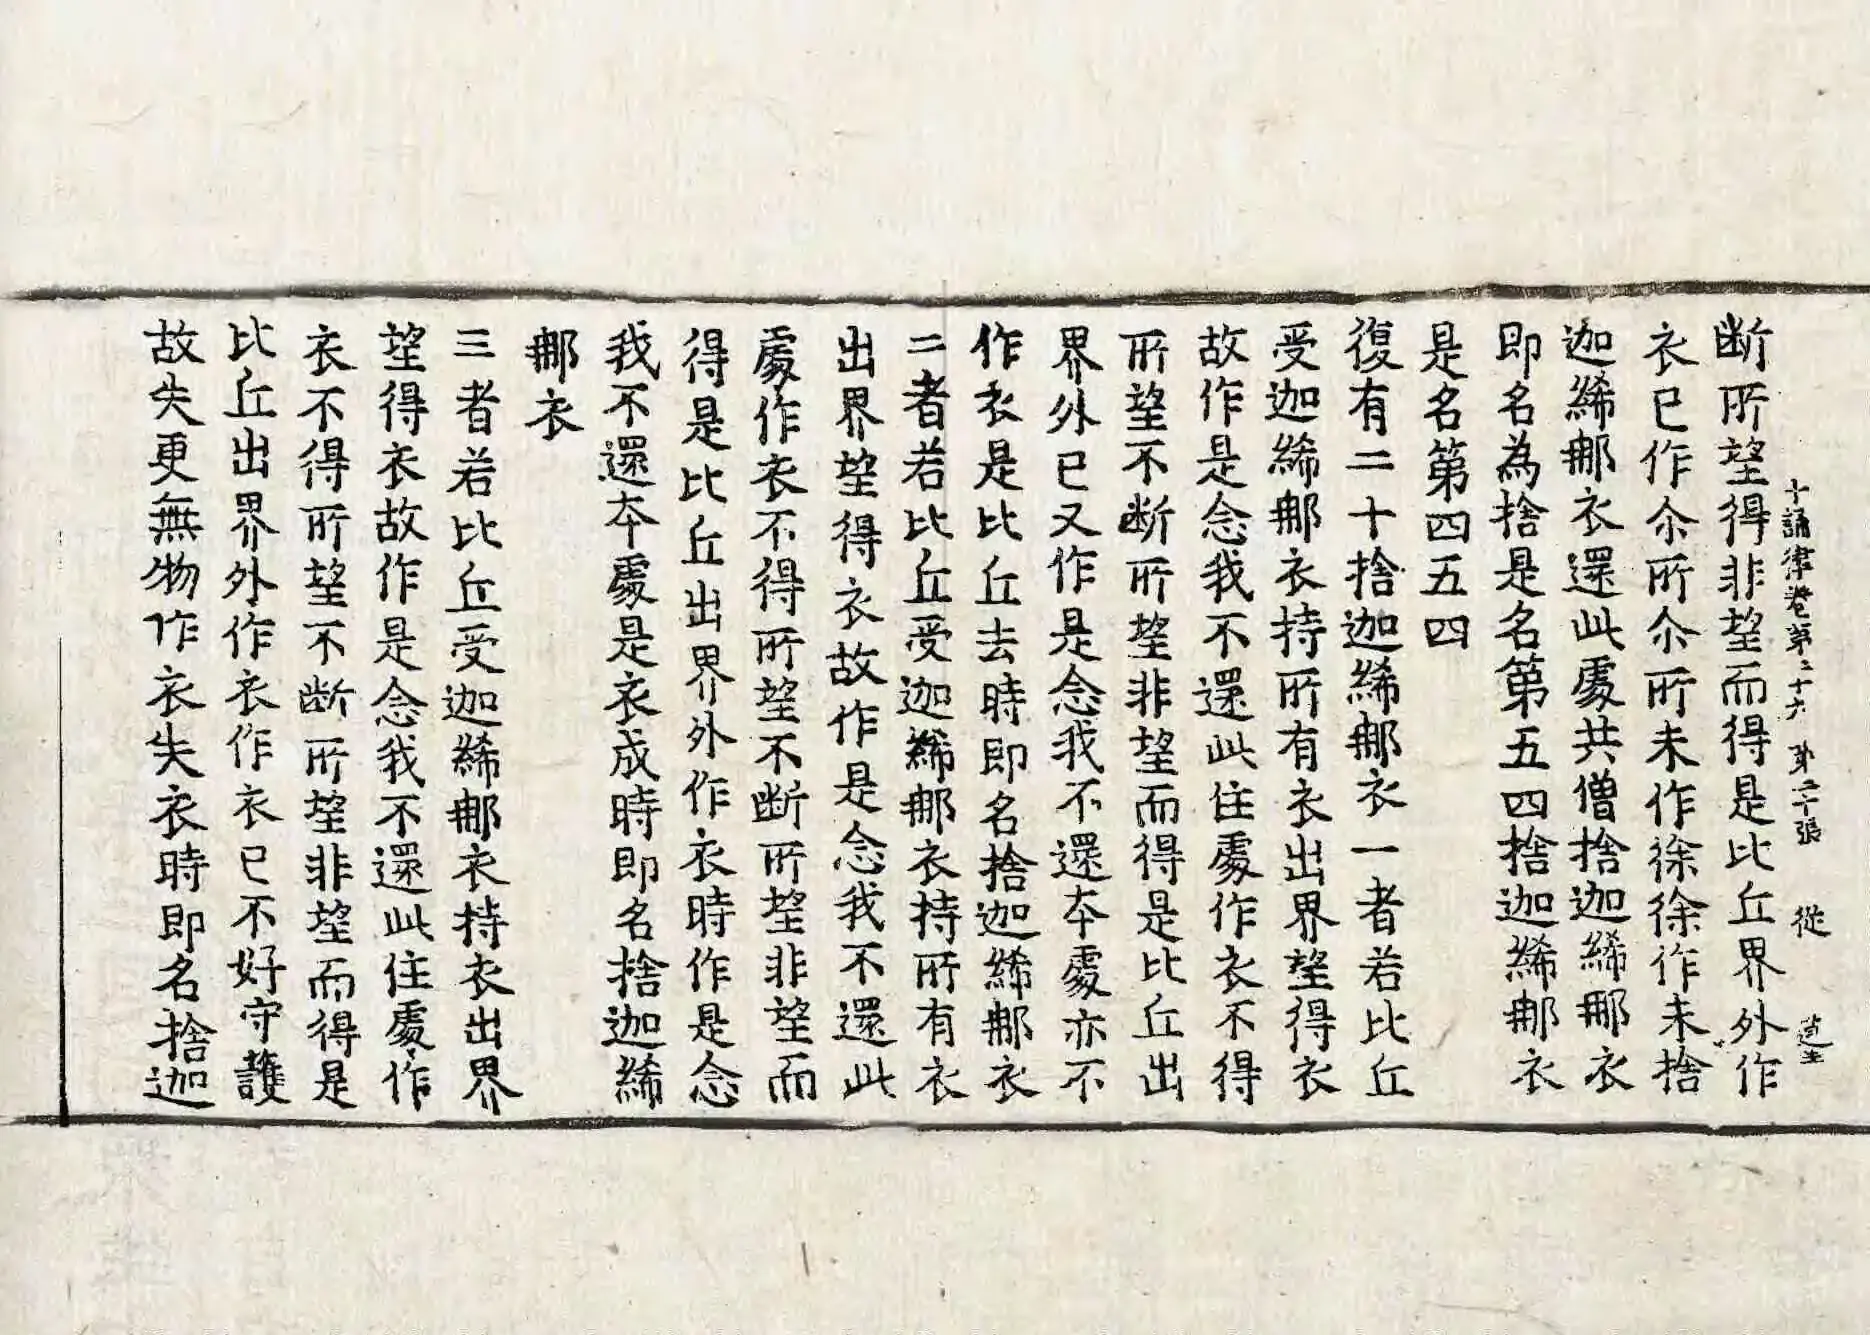 十誦律卷第二十六 第二十張 從
断所望得非望而得是比丘界外作
衣已作尒所尒所未作徐徐作未捨
迦絺那衣還此處共僧捨迦絺那衣
即名為捨是名第五四捨迦絺那衣
是名第四五四
復有二十捨迦絺那衣一者若比丘
受迦絺那衣持所有衣出界望得衣
故作是念我不還此住處作衣不得
所望不断所望非望而得是比丘出
界外已又作是念我不還夲處亦不
作衣是比丘去時即名捨迦絺那衣
二者若比丘受迦絺那衣持所有衣
出界望得衣故作是念我不還此
處作衣不得所望不断所望非望而
得是比丘出界外作衣時作是念
我不還夲處是衣成時即名捨迦絺
那衣
三者若比丘受迦絺那衣持衣出界
望得衣故作是念我不還此住處作
衣不得所望不断所望非望而得是
比丘出界外作衣作衣已不好守護
故失更無物作衣失衣時即名捨迦